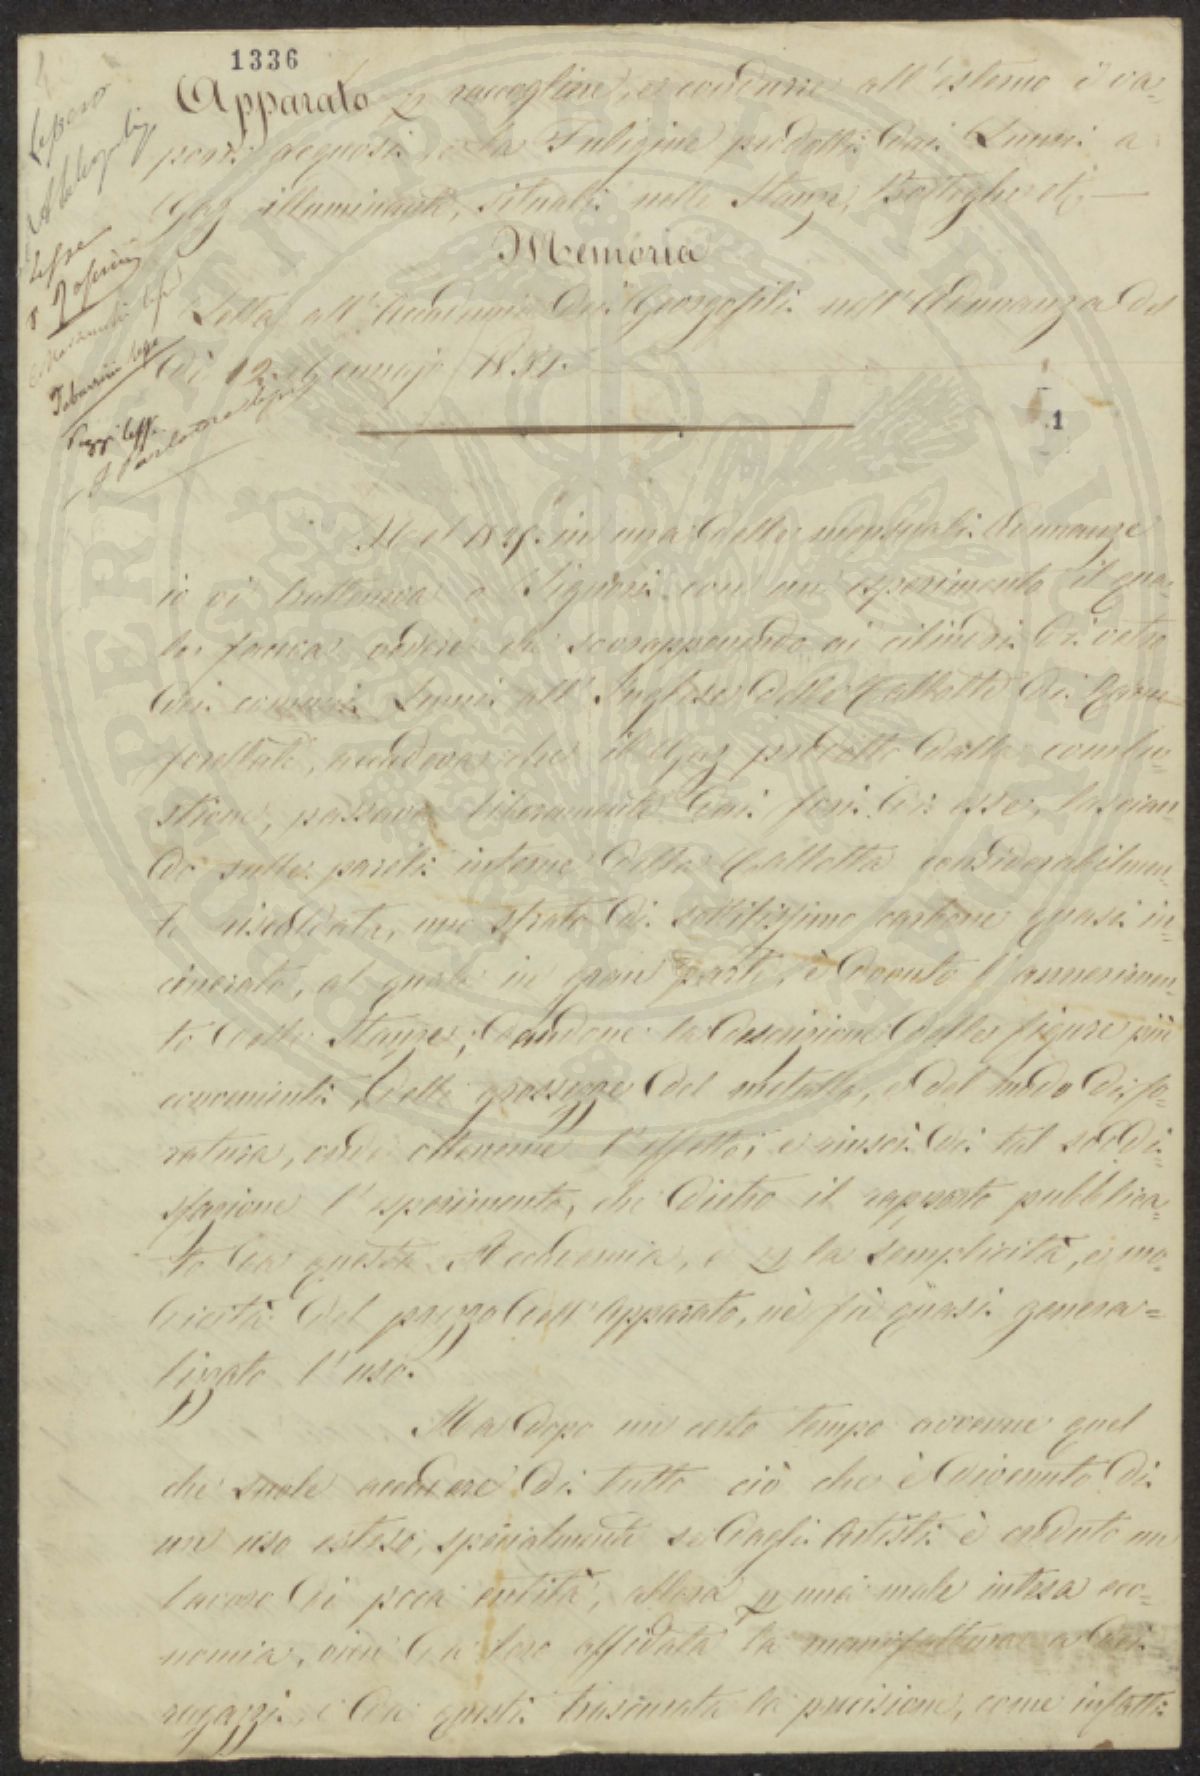 1336
Apparato p raccogliere, e condurre all'esterno i va-
pori acquosi, e la Fuligine prodotti dai Lumi a
Gaz illuminante, situati nelle Stanze, Botteghe etc.
Memoria
Letta all'Accademia dei Georgofili nell'Adunanza del
dì 12 Gennajo 1851.
Lessero
Lesse
Tabarrini lesse
Poggi lesse
1
Nel in una delle mensuali Adunanze
io vi tratteneva o Signori con un esperimento il qua-
le faceva vedere che sovrapponendo ai cilindri di vetro
dei comuni Lumi all'Inglese delle Callotte di Rame
forellate, accadeva che il Gaz prodotto dalla combu-
stione, passava liberamente dai fori di esse, lascian-
do sulle pareti interne della Callotta considerabilmen-
te riscaldata, uno strato di sottilissimo carbone quasi in-
cenerato, al quale in gran parte, è dovuto l'annerimen-
to delle Stanze; dandone la descrizione delle figure più
convenienti, delle grossezze del metallo, e del modo di fo-
ratura, onde ottenerne l'effetto; e riuscì di tal soddi-
sfazione l'esperimento, che dietro il rapporto pubblica-
to da questa Accademia, e p la semplicità, e mo-
dicità del prezzo dell'Apparato, nè fù quasi genera-
lizzato l'uso.
Ma dopo un certo tempo avvenne quel
che suole accadere di tutto ciò che è divenuto di
un uso esteso, specialmente se dagli Artisti è creduto un
lavoro di poca entità, allora p una male intesa eco-
nomia, vien da loro affidata la manifattura a dei
ragazzi, e da questi trascurata la precisione, come infatti